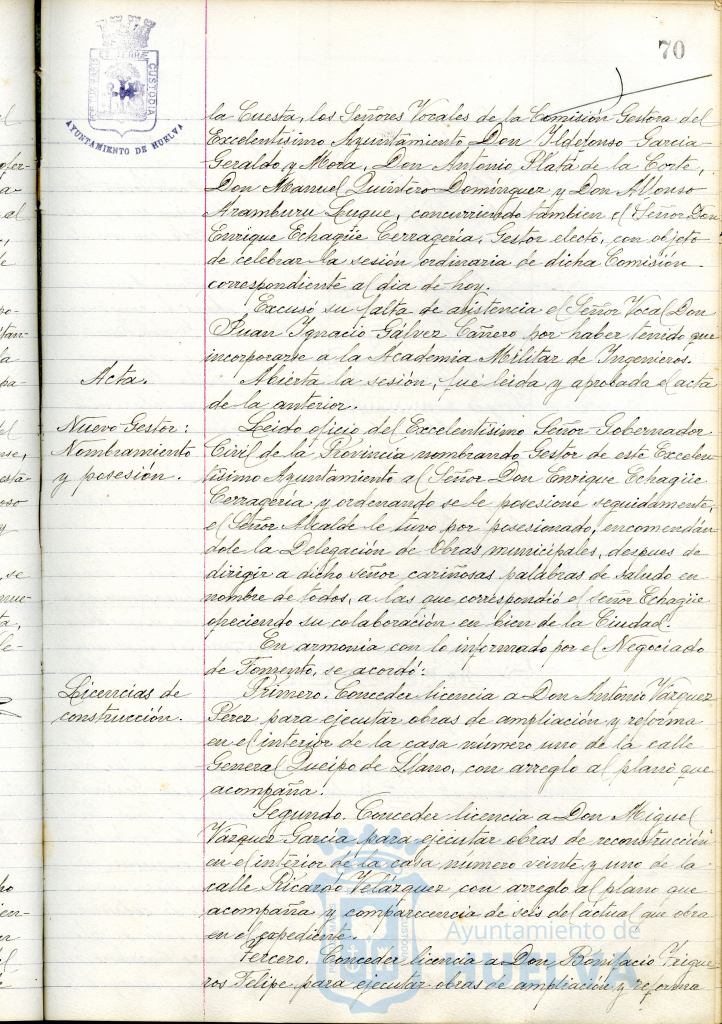 70
PORTUS MARIS ET TERRAE CUSTODIA
AYUNTAMIENTO DE HUELVA
la Cuesta, los Señores Vocales de la Comisión Gestora del
Excelentísimo Ayuntamiento Don Ildefonso Garcia-
Geraldo y Mora, Don Antonio Plata de la Corte,
Don Manuel Quintero Dominguez y Don Alfonso
Aramburu Luque, concurriendo tambien el Señor Don
Enrique Echagüe Cerrageria, Gestor electo, con objeto
de celebrar la sesión ordinaria de dicha Comisión
correspondiente al dia de hoy.
Excusó su falta de asistencia el Señor Vocal Don
Juan Ignacio Gálvez Cañero por haber tenido que
incorporarse a la Academia Militar de Ingenieros.
Acta.
Abierta la sesión, fué leida y aprobada el acta
de la anterior.
Nuevo Gestor:
Nombramiento
y posesión.
Leido oficio del Excelentísimo Señor Gobernador
Civil de la Provincia nombrando Gestor de este Excelen-
tísimo Ayuntamiento al Señor Don Enrique Echagüe
Cerragería y ordenando se le posesione seguidamente,
el Señor Alcalde le tuvo por posesionado, encomendán-
dole la Delegación de Obras municipales, despues de
dirigir a dicho señor cariñosas palabras de saludo en
nombre de todos, a las que correspondió el señor Echagüe
ofreciendo su colaboración en bien de la Ciudad.
En armonia con lo informado por el Negociado
de Fomento, se acordó:
Licencias de
construcción.
Primero. Conceder licencia a Don Antonio Vázquez
Pérez para ejecutar obras de ampliación y reforma
en el interior de la casa número uno de la calle
General Queipo de Llano, con arreglo al plano que
acompaña.
Segundo. Conceder licencia a Don Miguel
Vázquez García para ejecutar obras de reconstrucción
en el interior de la casa número veinte y uno de la
calle Ricardo Velázquez, con arreglo al plano que
acompaña y comparecencia de seis del actual que obra
en el expediente.
Tercero. Conceder licencia a Don Bonifacio Trigue-
ros Felipe para ejecutar obras de ampliación y reforma
Ayuntamiento de
HUELVA